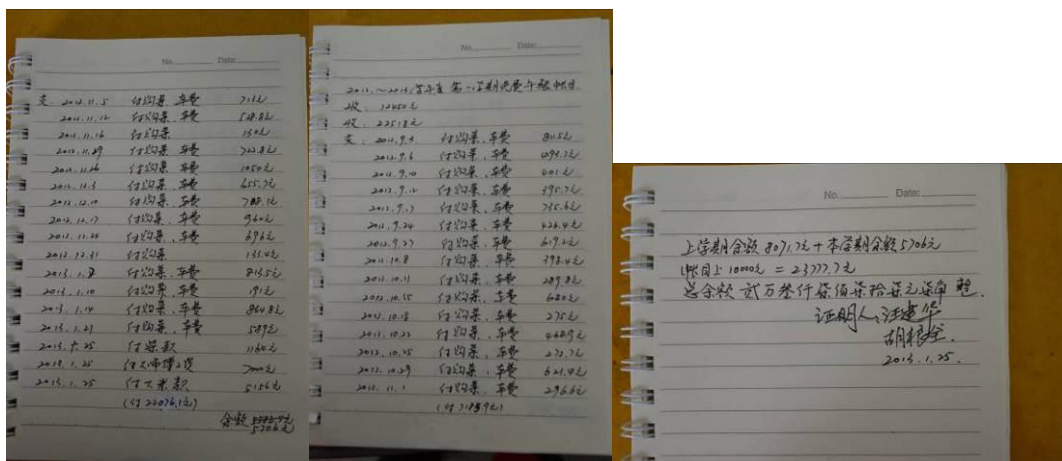 No. Date:
支: 2012.11.5 付购菜、车费 713元
2012.11.12 付购菜、车费 528.8元
2012.11.16 付购菜 130元
付购菜、车费 722.8元
2012.11.26 付购菜、车费 1050元
2012.12.3 付购菜、车费 655.7元
2012.12.10 付购菜、车费
2012.12.17 付购菜、车费 960元
付购菜、车费 696元
2012.12.31 付购菜 133.4元
2013.1.8 付购菜、车费 813.5元
2013.1.10 付购菜、车费 191元
2013.1.14 付购菜、车费 864.8元
2013.1.21 付购菜、车费 589元
付菜款 1160元
2013.1.25 7000元
2013.1.25 付大米款 5156元
(付22076.1元)
余额
5706元
No. Date:
学年度第一学期免费午餐帐目
收: 12450元
收: 22518元
支: 付购菜、车费
2012.9.6 付购菜、车费
2012.9.10 付购菜、车费 401元
2012.9.12 付购菜、车费 395.7元
2012.9.17 付购菜、车费 735.6元
2012.9.24 付购菜、车费 426.4元
2012.9.27 付购菜、车费 619.2元
2012.10.8 付购菜、车费 398.4元
2012.10.11 付购菜、车费 289.8元
2012.10.15 付购菜、车费 680元
2012.10.18 付购菜、车费 275元
2012.10.22 付购菜、车费 468.9元
2012.10.25 付购菜、车费 272.7元
2012.10.29 付购菜、车费 621.4元
2012.11.1 付购菜、车费 296.6元
No. Date:
上学期余额8071.7元+本学期余额5706元
帐目上10000元=23777.7元
总余额 贰万叁仟柒佰柒拾柒元柒角整.
证明人:汪建华
胡根全
2013.1.25.